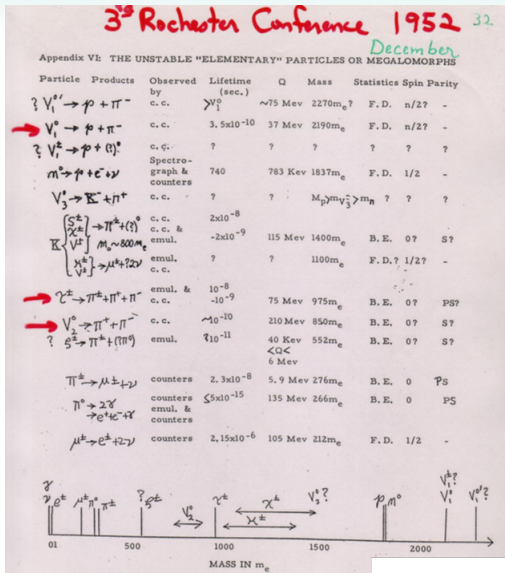 3rd Rochester Conference 1952 32.
December
Appendix VI: THE UNSTABLE "ELEMENTARY" PARTICLES OR MEGALOMORPHS
Particle Products Observed by Lifetime (sec.) Q Mass Statistics Spin Parity
? V₁⁰' → p + π⁻ c. c. >V₁⁰ ~75 Mev 2270mₑ? F. D. n/2? -
→ V₁⁰ → p + π⁻ c. c. 3.5x10⁻¹⁰ 37 Mev 2190mₑ F. D. n/2? -
? V₁± → p + (?)⁰ c. c. ? ? ? ? ? ?
n⁰ → p + e⁻ + ν Spectro-graph & counters 740 783 Kev 1837mₑ F. D. 1/2 -
V₃⁰ → K⁻ + π⁺ c. c. ? ? ? ? ?
K S± χ± V± → π± + (?)⁰ m ~ 800 mₑ c. c. c. c. & emul. 2x10⁻⁸ -2x10⁻⁹ 115 Mev 1400mₑ B. E. 0? S?
κ± V± → μ± + ?2ν emul. c. c. ? ? 1100mₑ F. D.? 1/2? -
→ τ± → π± + π⁺ + π⁻ emul. & c. c. 10⁻⁸ -10⁻⁹ 75 Mev 975mₑ B. E. 0? PS?
→ V₂⁰ → π⁺ + π⁻ c. c. ~10⁻¹⁰ 210 Mev 850mₑ B. E. 0? S?
? ζ± → π± + (?π⁰) emul. ?10⁻¹¹ 40 Kev <Q< 6 Mev 552mₑ B. E. 0? S?
π± → μ± + ν counters 2.3x10⁻⁸ 5.9 Mev 276mₑ B. E. 0 PS
π⁰ → 2γ counters ≤5x10⁻¹⁵ 135 Mev 266mₑ B. E. 0 PS
→ e⁺ + e⁻ + γ emul. & counters
μ± → e± + 2ν counters 2.15x10⁻⁶ 105 Mev 212mₑ F. D. 1/2 -
γ ν e± μ± π⁰ π± ? ζ± V₂⁰ τ± χ± κ± V₃⁰? p n⁰ V₁±? V₁⁰ V₁⁰'?
01 500 1000 1500 2000
MASS IN mₑ